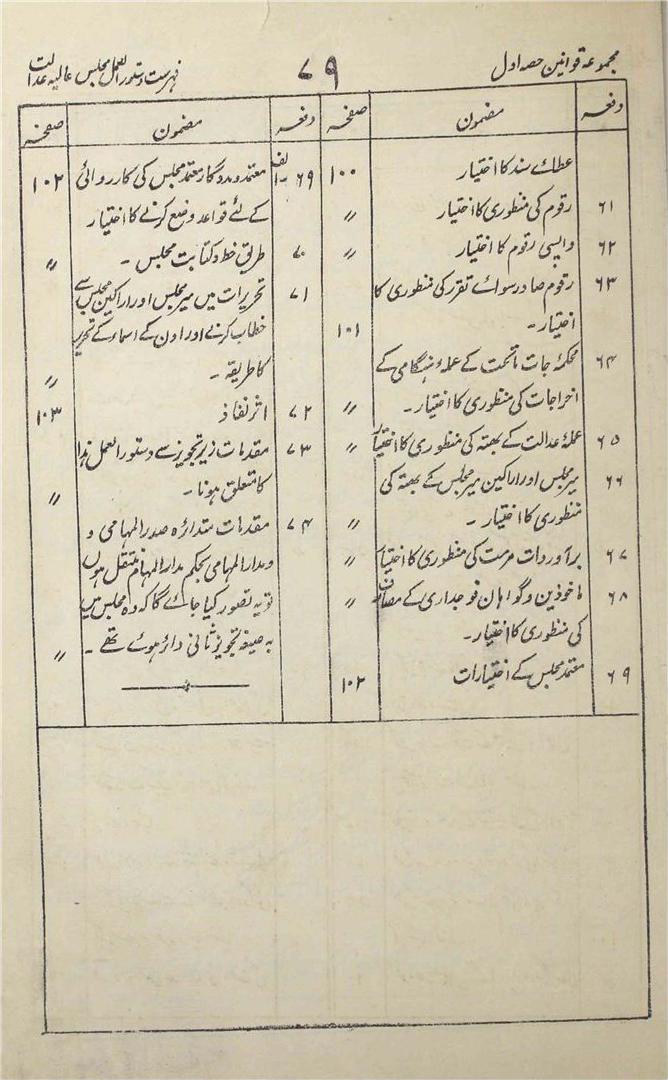 مجموعہ قوانین حصہ اول
۷۹
فہرست دستور العمل مجلس عالیہ عدالت
دفعہ مضمون صفحہ
عطائے سند کا اختیار ۱۰۰
۶۱ رقوم کی منظوری کا اختیار 〃
۶۲ واپسی رقوم کا اختیار 〃
۶۳ رقوم صادر سوائے تقرر کی منظوری کا
اختیار ۔ ۱۰۱
۶۴ محکمہ جات ماتحت کے عملہ ہنگامی کے
اخراجات کی منظوری کا اختیار ۔ 〃
۶۵ عملہ عدالت کے بھتہ کی منظوری کا اختیار 〃
۶۶ میر مجلس اور اراکین میر مجلس کے بھتہ کی
منظوری کا اختیار ۔ 〃
۶۷ برآوردات مرمت کی منظوری کا اختیار 〃
۶۸ ماخوذین و گواہان فوجداری کے مصارف 〃
کی منظوری کا اختیار ۔
۶۹ معتمد مجلس کے اختیارات ۱۰۲
دفعہ مضمون صفحہ
۶۹۔الف معتمد و مددگار معتمد مجلس کی کارروائی ۱۰۲
کے لئے قواعد وضع کرنے کا اختیار
۷۰ طریق خط و کتابت مجلس ۔ 〃
۷۱ تحریرات میں میر مجلس اور اراکین مجلس سے
خطاب کرنے اور اون کے اسماء کے تحریر
کا طریقہ ۔ 〃
۷۲ اثر نفاذ ۱۰۳
۷۳ مقدمات زیر تجویز سے دستور العمل ہذا
کا متعلق ہونا ۔ 〃
۷۴ مقدمات متدائرہ صدر المہامی و
و مدار المہامی بحکم مدار المہام منتقل ہوں
تو یہ تصور کیا جائے گا کہ وہ مجلس میں
بہ صیغہ تجویز ثانی دائر ہوئے تھے ۔ 〃